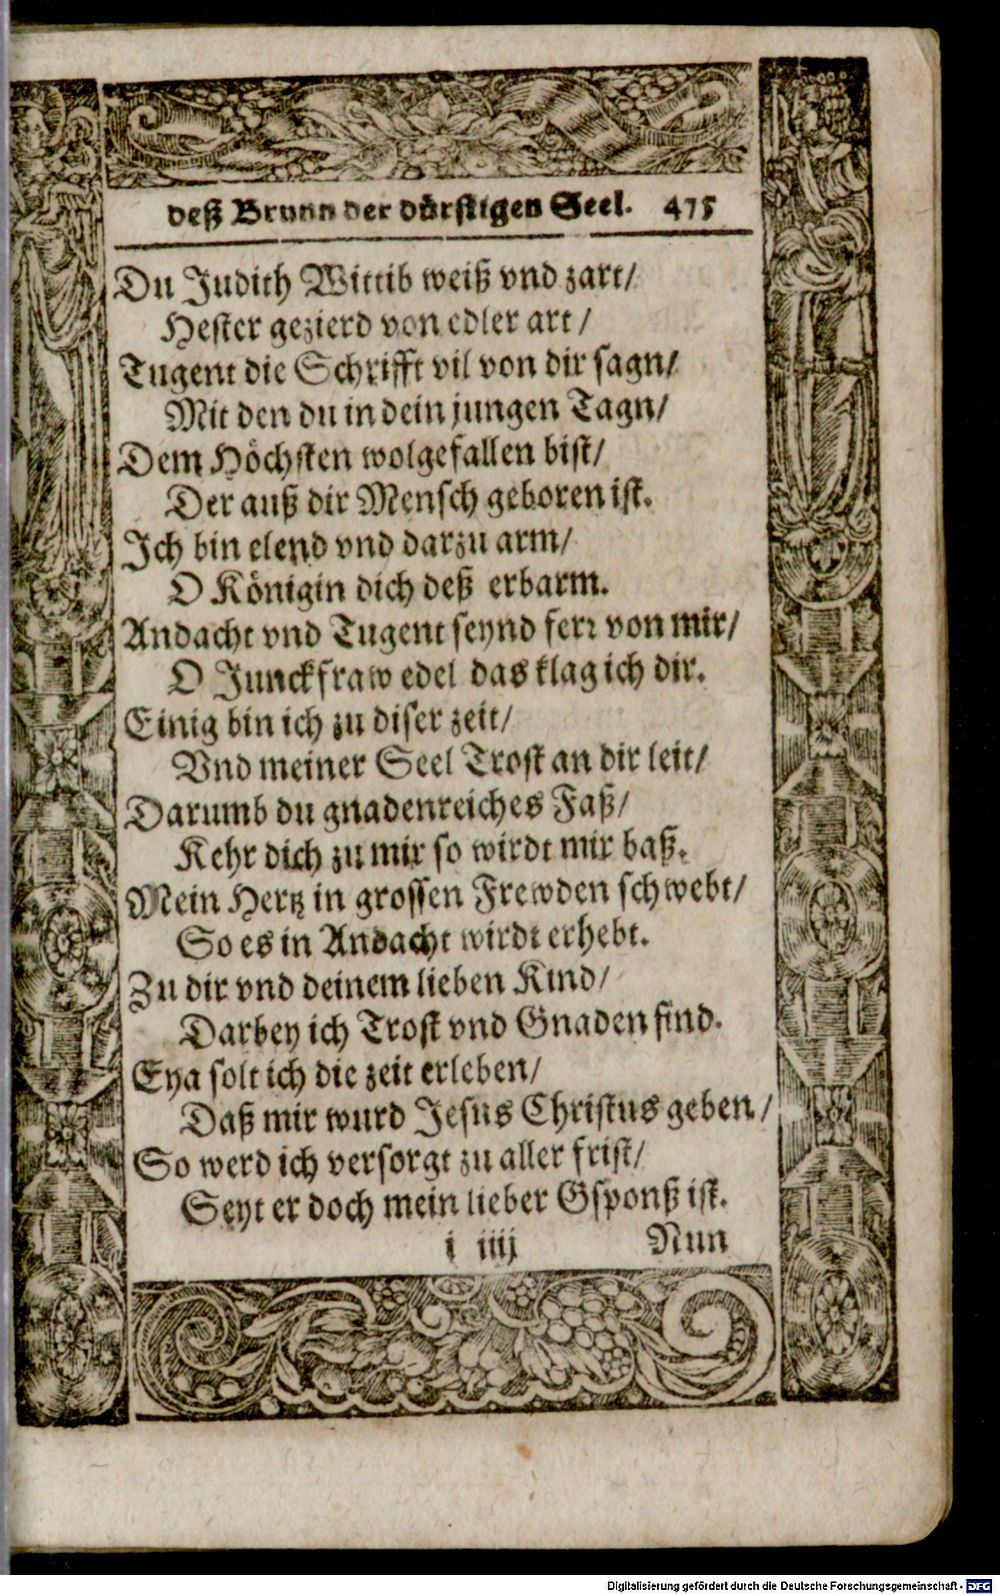 deß Brunn der dürstigen Seel. 475
Du Judith Wittib weiß vnd zart/
Hester gezierd von edler art/
Tugent die Schrifft vil von dir sagn/
Mit den du in dein jungen Tagn/
Dem Höchsten wolgefallen bist/
Der auß dir Mensch geboren ist.
Ich bin elend vnd darzu arm/
O Königin dich deß erbarm.
Andacht vnd Tugent seynd ferr von mir/
O Junckfraw edel das klag ich dir.
Einig bin ich zu diser zeit/
Vnd meiner Seel Trost an dir leit/
Darumb du gnadenreiches Faß/
Kehr dich zu mir so wirdt mir baß.
Mein Hertz in grossen Frewden schwebt/
So es in Andacht wirdt erhebt.
Zu dir vnd deinem lieben Kind/
Darbey ich Trost vnd Gnaden find.
Eya solt ich die zeit erleben/
Daß mir wurd Jesus Christus geben/
So werd ich versorgt zu aller frist/
Seyt er doch mein lieber Gsponß ist.
i iiij Nun
Digitalisierung gefördert durch die Deutsche Forschungsgemeinschaft - DFG